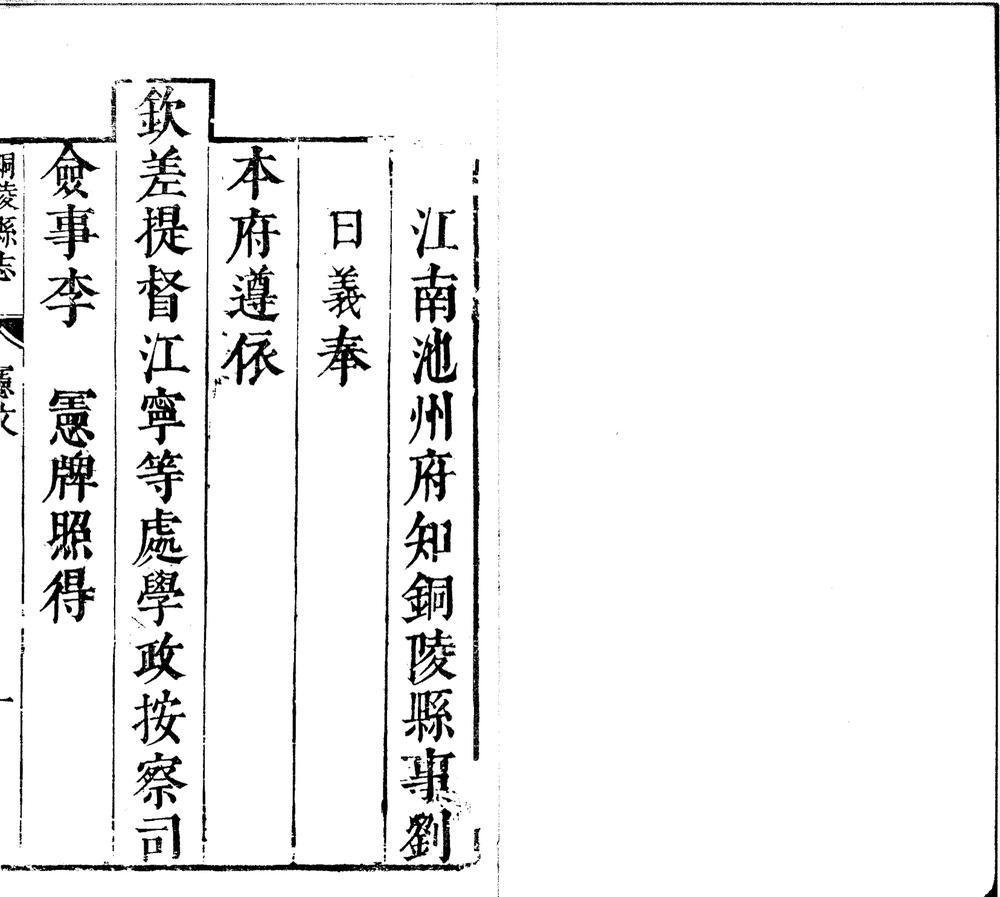 江南池州府知銅陵縣事劉
曰義奉
本府遵依
欽差提督江寧等處學政按察司
僉事李　憲牌照得
銅陵縣志　憲文　一